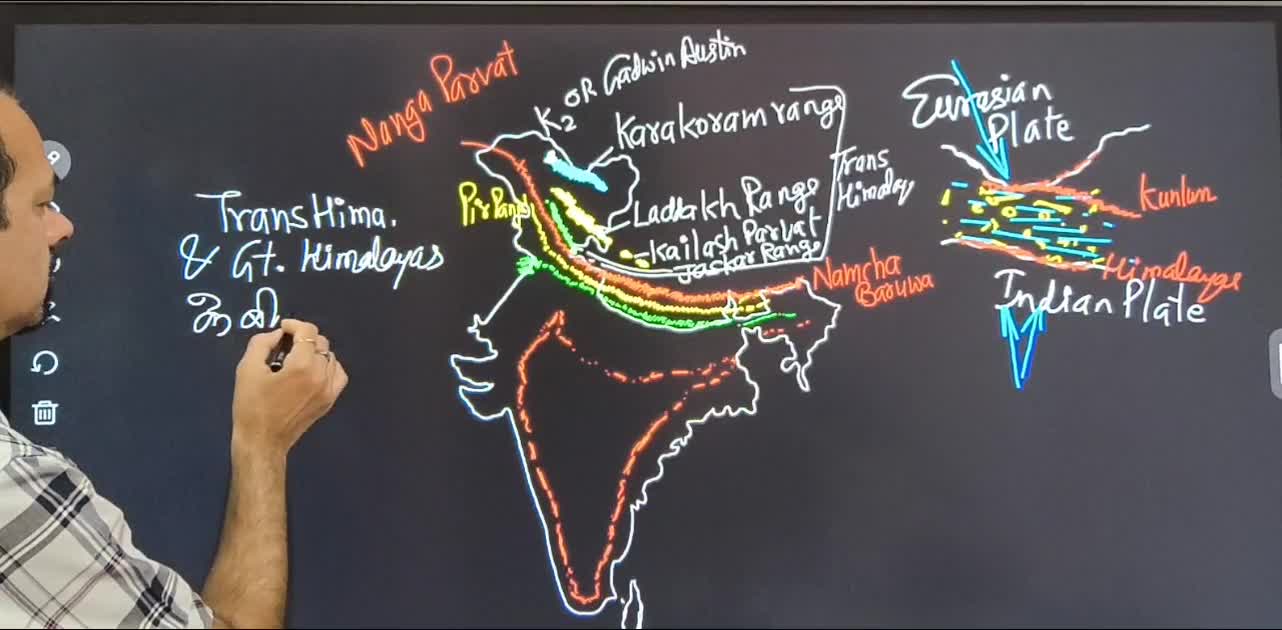 Nanga Parvat
K2 OR Gadwin Austin
Karakoram range
Trans
Himalay
Ladakh Range
Kailash Parvat
Jaskar Range
Pir Panj
TransHima.
& Gt. Himalayas
Namcha
Baruwa
Eurasian
Plate
Kunlun
Himalayas
Indian Plate